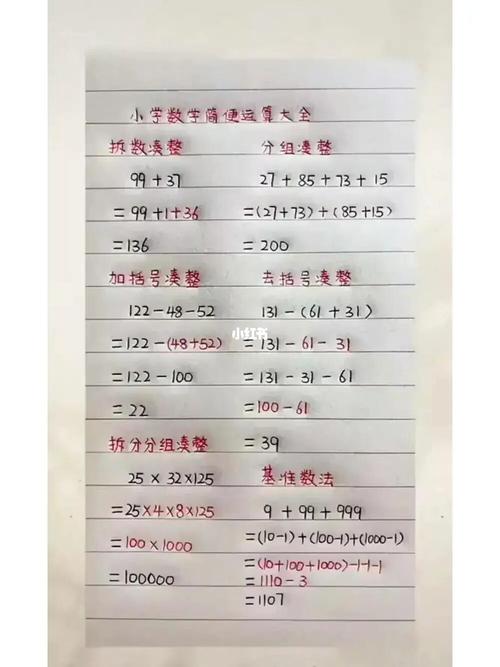 小学数学简便运算大全
拆数凑整
99+37
=99+1+36
=136
分组凑整
27+85+73+15
=(27+73)+(85+15)
=200
加括号凑整
122-48-52
=122-(48+52)
=122-100
=22
去括号凑整
131-(61+31)
=131-61-31
=131-31-61
=100-61
=39
拆分分组凑整
25×32×125
=25×4×8×125
=100×1000
=100000
基准数法
9+99+999
=(10-1)+(100-1)+(1000-1)
=(10+100+1000)-1-1-1
=1110-3
=1107
小红书